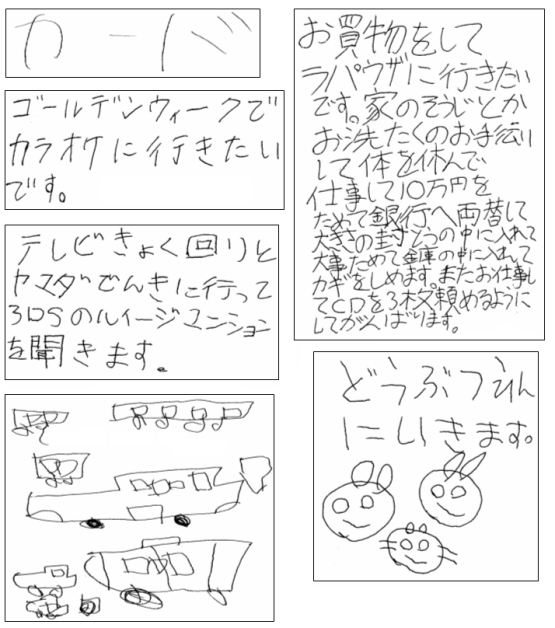 カード
ゴールデンウィークで
カラオケに行きたい
です。
テレビきょく回りと
ヤマダでんきに行って
3DSのルイージマンション
を聞きます。
お買物をして
ラパウザに行きたい
です。家のそうじとか
お洗たくのお手伝い
して体を休んで
仕事して10万円を
ためて銀行へ両替して
大きの封とうの中に入れて
大事ためて金庫の中に入れて
カギをしめます。またお仕事し
てCDを3枚頼めるように
してがんばります。
どうぶつえん
にいきます。